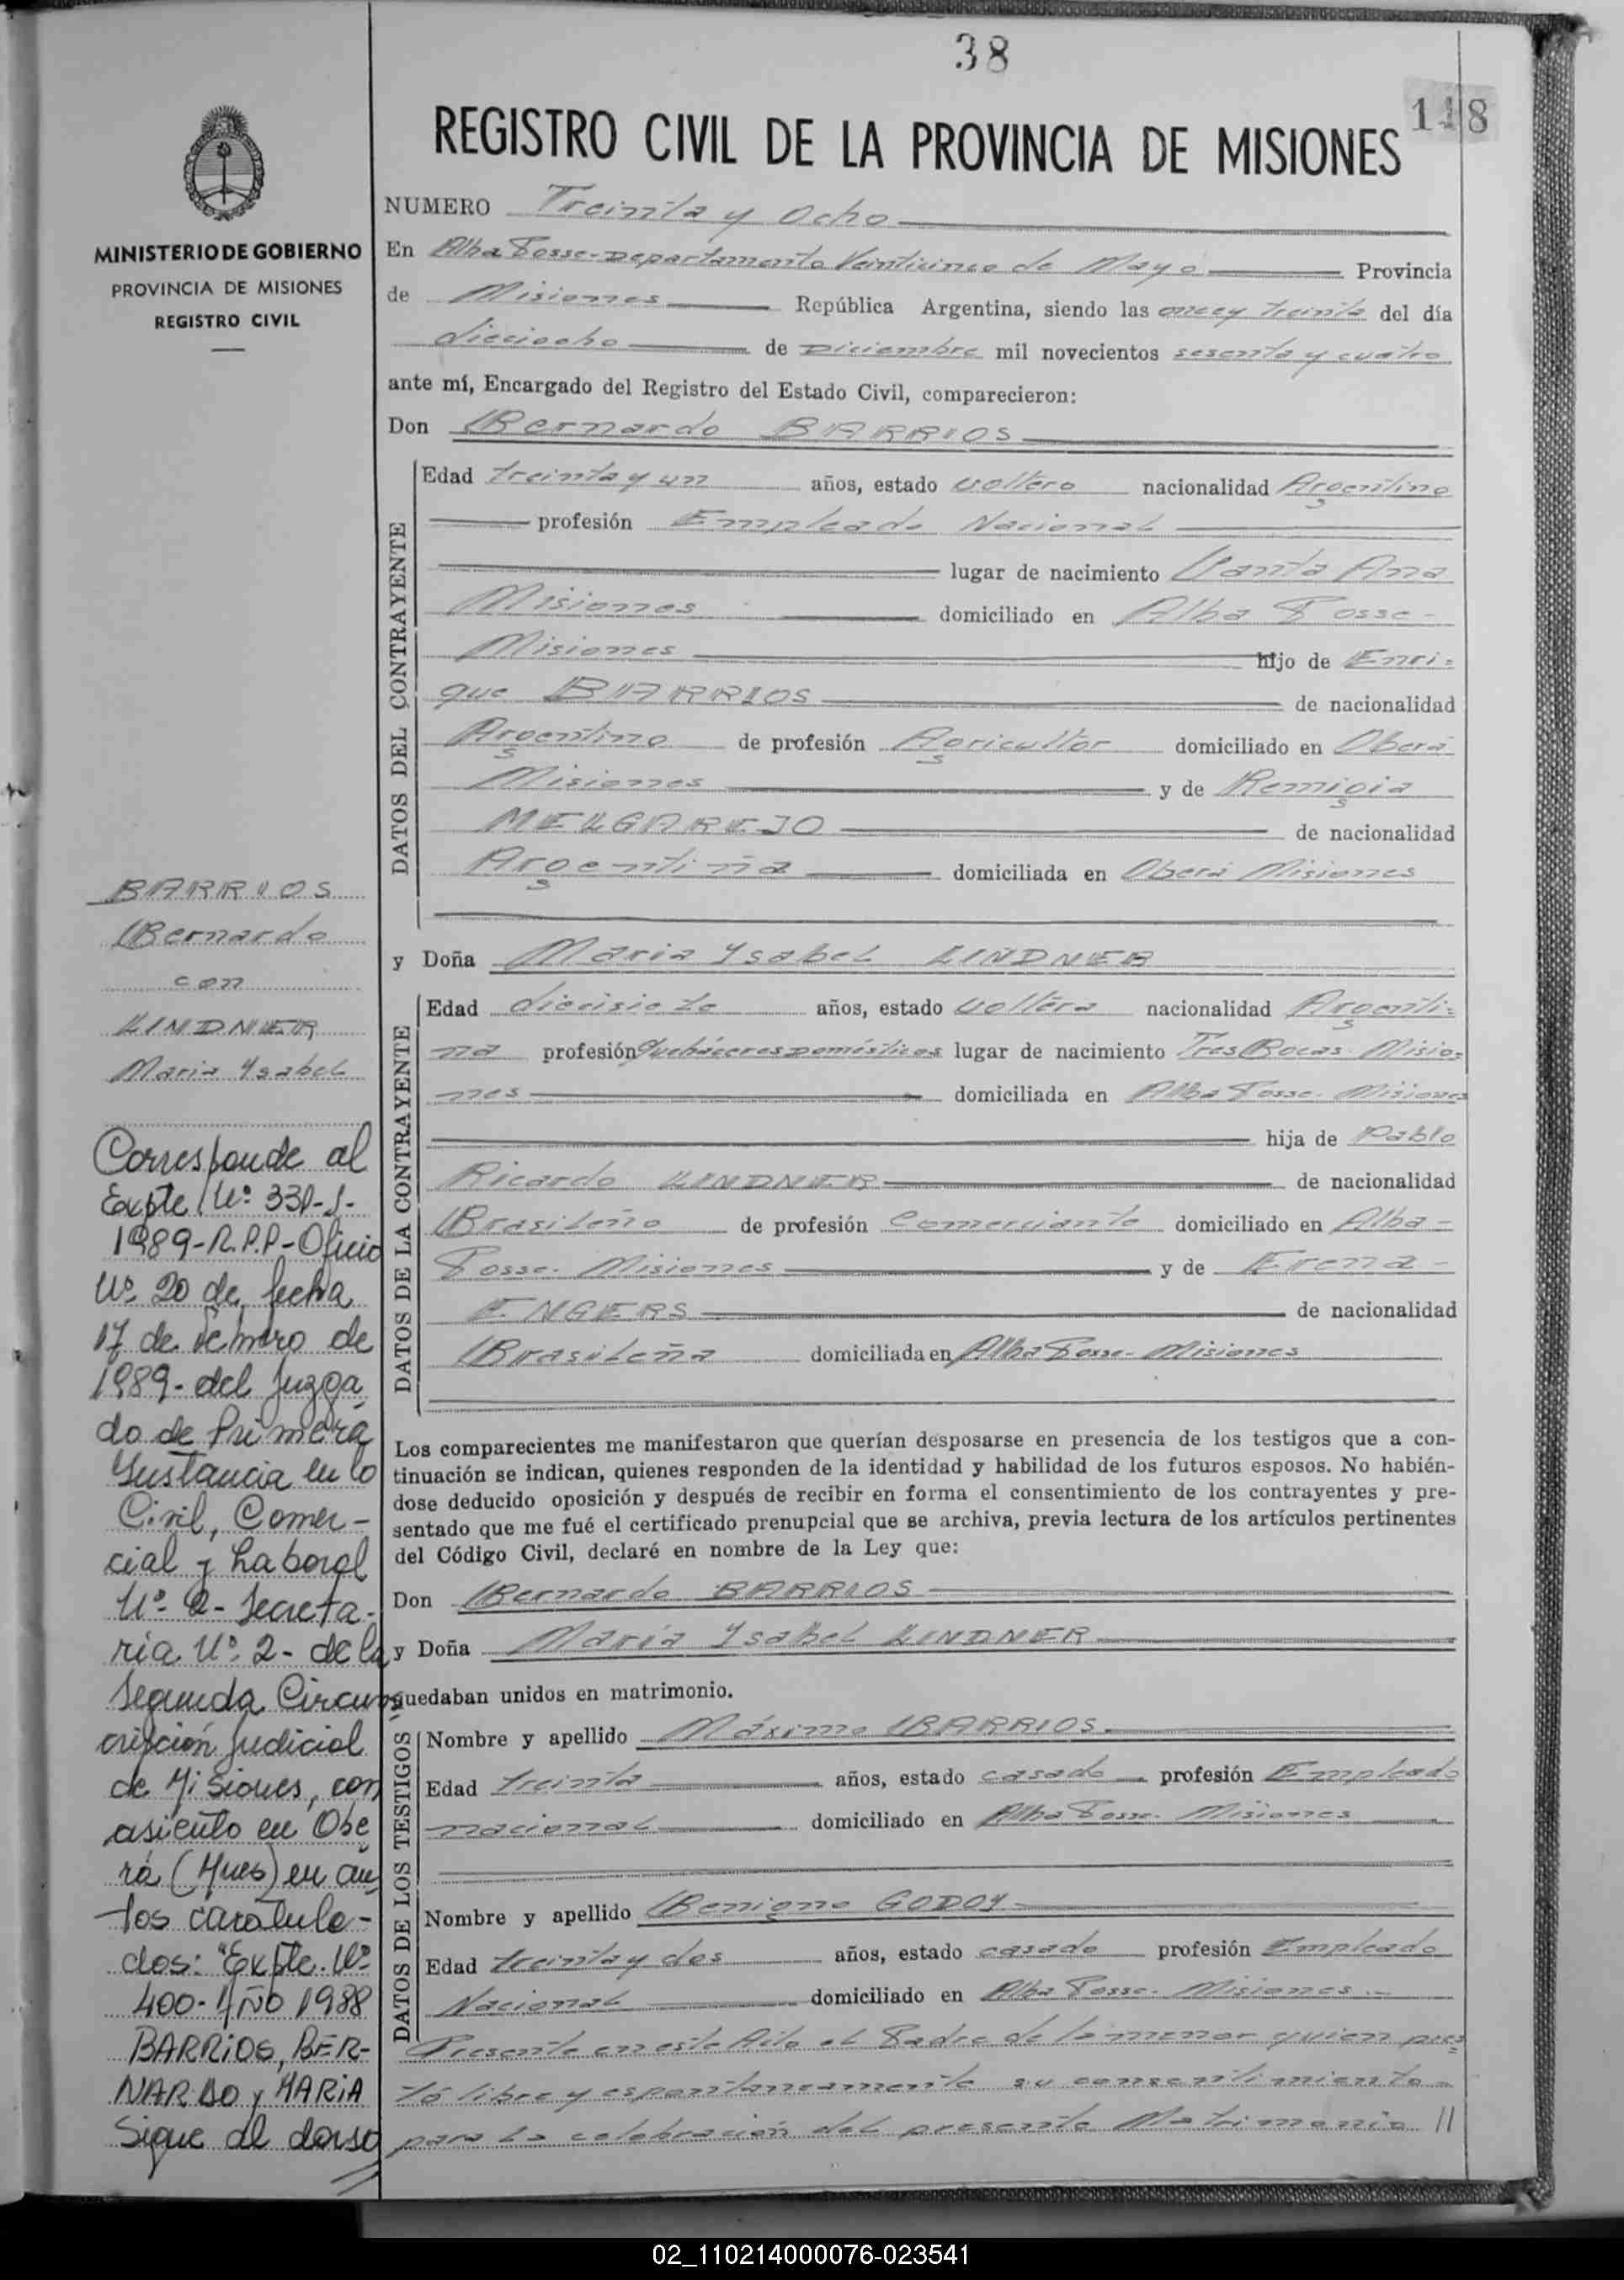 38
118
REGISTRO CIVIL DE LA PROVINCIA DE MISIONES
MINISTERIO DE GOBIERNO
PROVINCIA DE MISIONES
REGISTRO CIVIL
NUMERO Treinta y Ocho
En Alba Posse-Departamento Veinticinco de Mayo Provincia
de Misiones República Argentina, siendo las once y treinta del día
dieciocho de Diciembre mil novecientos sesenta y cuatro
ante mí, Encargado del Registro del Estado Civil, comparecieron:
Don Bernardo BARRIOS
DATOS DEL CONTRAYENTE
Edad treinta y un años, estado soltero nacionalidad Argentino
profesión Empleado Nacional
lugar de nacimiento Santa Ana
Misiones domiciliado en Alba Posse-
Misiones hijo de Enri=
que BARRIOS de nacionalidad
Argentino de profesión Agricultor domiciliado en Oberá
Misiones y de Remigia
MELGAREJO de nacionalidad
Argentina domiciliada en Oberá Misiones
y Doña Maria Ysabel LINDNER
DATOS DE LA CONTRAYENTE
Edad diecisiete años, estado soltera nacionalidad Argenti=
na profesión Quehaceres Domésticos lugar de nacimiento Tres Bocas. Misio=
nes domiciliada en Alba Posse. Misiones
hija de Pablo
Ricardo LINDNER de nacionalidad
Brasileño de profesión Comerciante domiciliado en Alba-
Posse. Misiones y de Erena-
ENGERS de nacionalidad
Brasileña domiciliada en Alba Posse- Misiones
Los comparecientes me manifestaron que querían desposarse en presencia de los testigos que a con-
tinuación se indican, quienes responden de la identidad y habilidad de los futuros esposos. No habién-
dose deducido oposición y después de recibir en forma el consentimiento de los contrayentes y pre-
sentado que me fué el certificado prenupcial que se archiva, previa lectura de los artículos pertinentes
del Código Civil, declaré en nombre de la Ley que:
Don Bernardo BARRIOS
y Doña María Ysabel LINDNER
quedaban unidos en matrimonio.
DATOS DE LOS TESTIGOS
Nombre y apellido Máximo BARRIOS.
Edad treinta años, estado casado profesión Empleado
nacional domiciliado en Alba Posse. Misiones
Nombre y apellido Benigno GODOY
Edad treinta y dos años, estado casado profesión Empleado
Nacional domiciliado en Alba Posse. Misiones.-
Presente en este Acto el Padre de la menor quien pres=
tó libre y espontaneamente su consentimiento-
para la celebración del presente Matrimonio //
BARRIOS
Bernardo
con
LINDNER
Maria Ysabel
Corresponde al
Expte Nº 330-
1989-R.P.P-Oficio
Nº 20 de fecha
17 de de
1989- del Juzga
do de Primera
Instancia en lo
Civil, Comer-
cial y Laboral
Nº 2- Secreta-
ria Nº 2- de la
Segunda Circuns
cripción Judicial
de Misiones, con
asiento en Obe
rá (Mnes) en au
tos caratula-
dos: "Expte. Nº
400- Año 1988
BARRIOS, BER-
NARDO y MARIA
Sigue al dorso
02_110214000076-023541